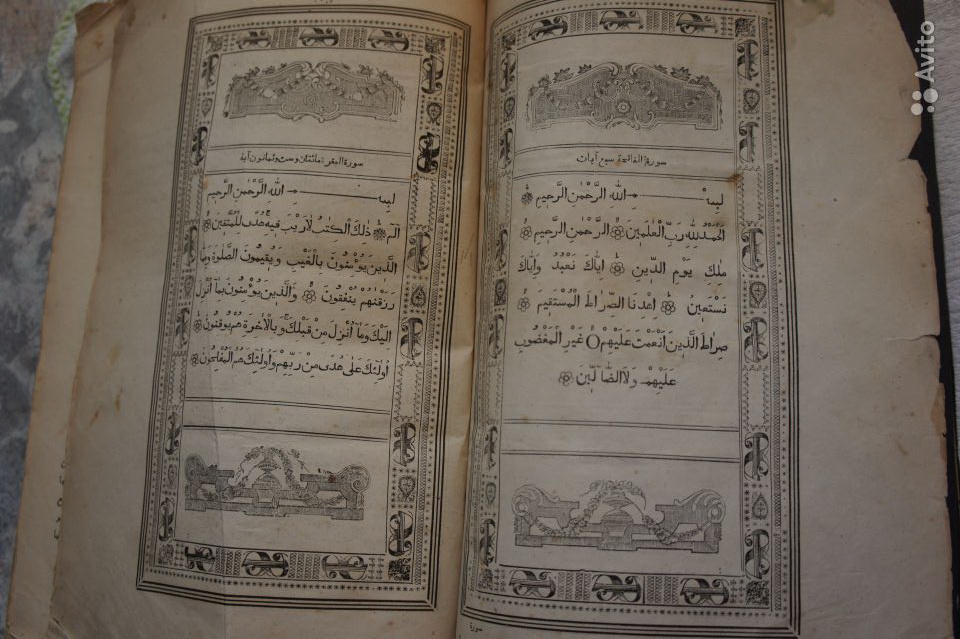 سورة الفاتحة سبع آيات
بسم ـــ الله الرَّحْمٰنِ الرَّحِيمِ ۞
اَلْحَمْدُ لِلّٰهِ رَبِّ الْعٰلَمِينَ ۞ الرَّحْمٰنِ الرَّحِيمِ ۞
مٰلِكِ يَوْمِ الدِّينِ ۞ اِيَّاكَ نَعْبُدُ وَاِيَّاكَ
نَسْتَعِينُ ۞ اِهْدِنَا الصِّرَاطَ الْمُسْتَقِيمَ ۞
صِرَاطَ الَّذِينَ اَنْعَمْتَ عَلَيْهِمْ ۝ غَيْرِ الْمَغْضُوبِ
عَلَيْهِمْ وَلَا الضَّآلِّينَ ۞
سورة
سورة البقرة مائتان وست وثمانون آية
بسم ـــ الله الرَّحْمٰنِ الرَّحِيمِ
الٓمٓ ۞ ذٰلِكَ الْكِتٰبُ لَا رَيْبَ فِيهِ هُدًى لِلْمُتَّقِينَ ۞
الَّذِينَ يُؤْمِنُونَ بِالْغَيْبِ وَيُقِيمُونَ الصَّلٰوةَ وَمِمَّا
رَزَقْنٰهُمْ يُنْفِقُونَ ۞ وَالَّذِينَ يُؤْمِنُونَ بِمَآ اُنْزِلَ
اِلَيْكَ وَمَآ اُنْزِلَ مِنْ قَبْلِكَ ج وَبِالْاٰخِرَةِ هُمْ يُوقِنُونَ ۞
اُولٰٓئِكَ عَلٰى هُدًى مِنْ رَبِّهِمْ وَاُولٰٓئِكَ هُمُ الْمُفْلِحُونَ ۞
Avito